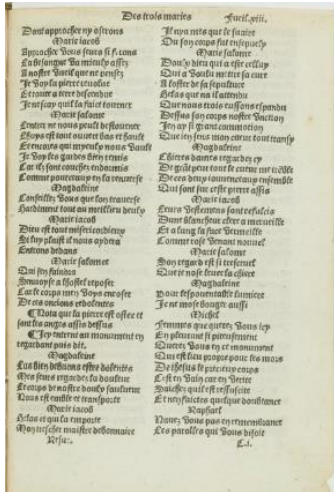 Des trois maries Fueil.xiii.
Dont approcher ny osrons
Marie iacob
Approcher vous seurs si ferons
La besongne va mieulx assez
A nostre vueil que ne pensez
Je voy la pierre
a terre descendue
Je ne scay qui la faict tourner
Marie salome
nous peult destourner
Lhuys est tout ouvert bas et hault
Et encores qui myeulx nous vault
Je voy les gardes bien remis
Car ilz sont couchez endormis
Comme pourceaux en la renverse
Magdaleine
Conseillez vous que lon traverse
Hardiment tout au meillieu deulx
Marie iacob
Dieu est tout misericordieux
Sil luy plaist il nous aydera
Entrons dedans
Marie salome
Qui sen faindra
a lhostel reposer
Car le corps men voys encoser
De ces oncions redolentes
Nota que la pierre est ostee et
sont les anges assis dessus
Icy entrent au monument en
regardant puis dit.
Magdaleine
Las bien debvons estre dolentes
Mes seurs regardez la douleur
Le corps de nostre doulx saulveur
Nous est emble et transporte
Marie iacob
Helas et qui la emporte
Mon treschier maistre debonnaire
Il nya mis que le suaire
Ou son corps fut ensepuely
Marie salome
Doulx dieu qui a este celluy
Qui a voulu mettre sa cure
A loster de sa sepulture
Helas que na il attendu
Que nous trois eussons espandu
Dessus son corps nostre unction
Jen ay si grant commotion
Que ien sens mon cueur tout transy
Magdaleine
Chieres dames regardez cy
De grant peur tout le cueur me tremble
De ces deux iouvenceaux ensemble
Qui sont sur ceste pierre assis
Marie iacob
Leurs vestemens sont
Dune blancheur clere a merveille
Et a lung la face vermeille
Comme rose venant nouvel
Marie salome
Son regard est si trescruel
Que ie nose lever la chiere
Magdaleine
Pour lespouentable lumiere
Je ne mose bouger aussi
Michel
Femmes que querez vous icy
En plourant si piteusement
Querez vous en ce monument
Qui est lieu propre pour les mors
De Jhesus le precieux corps
Cest en vain car en verite
Saichez quil est ressuscite
Et nen faictes quelque doubtance
Raphael
Navez vous pas en remembrance
Les parolles qui vous disoit